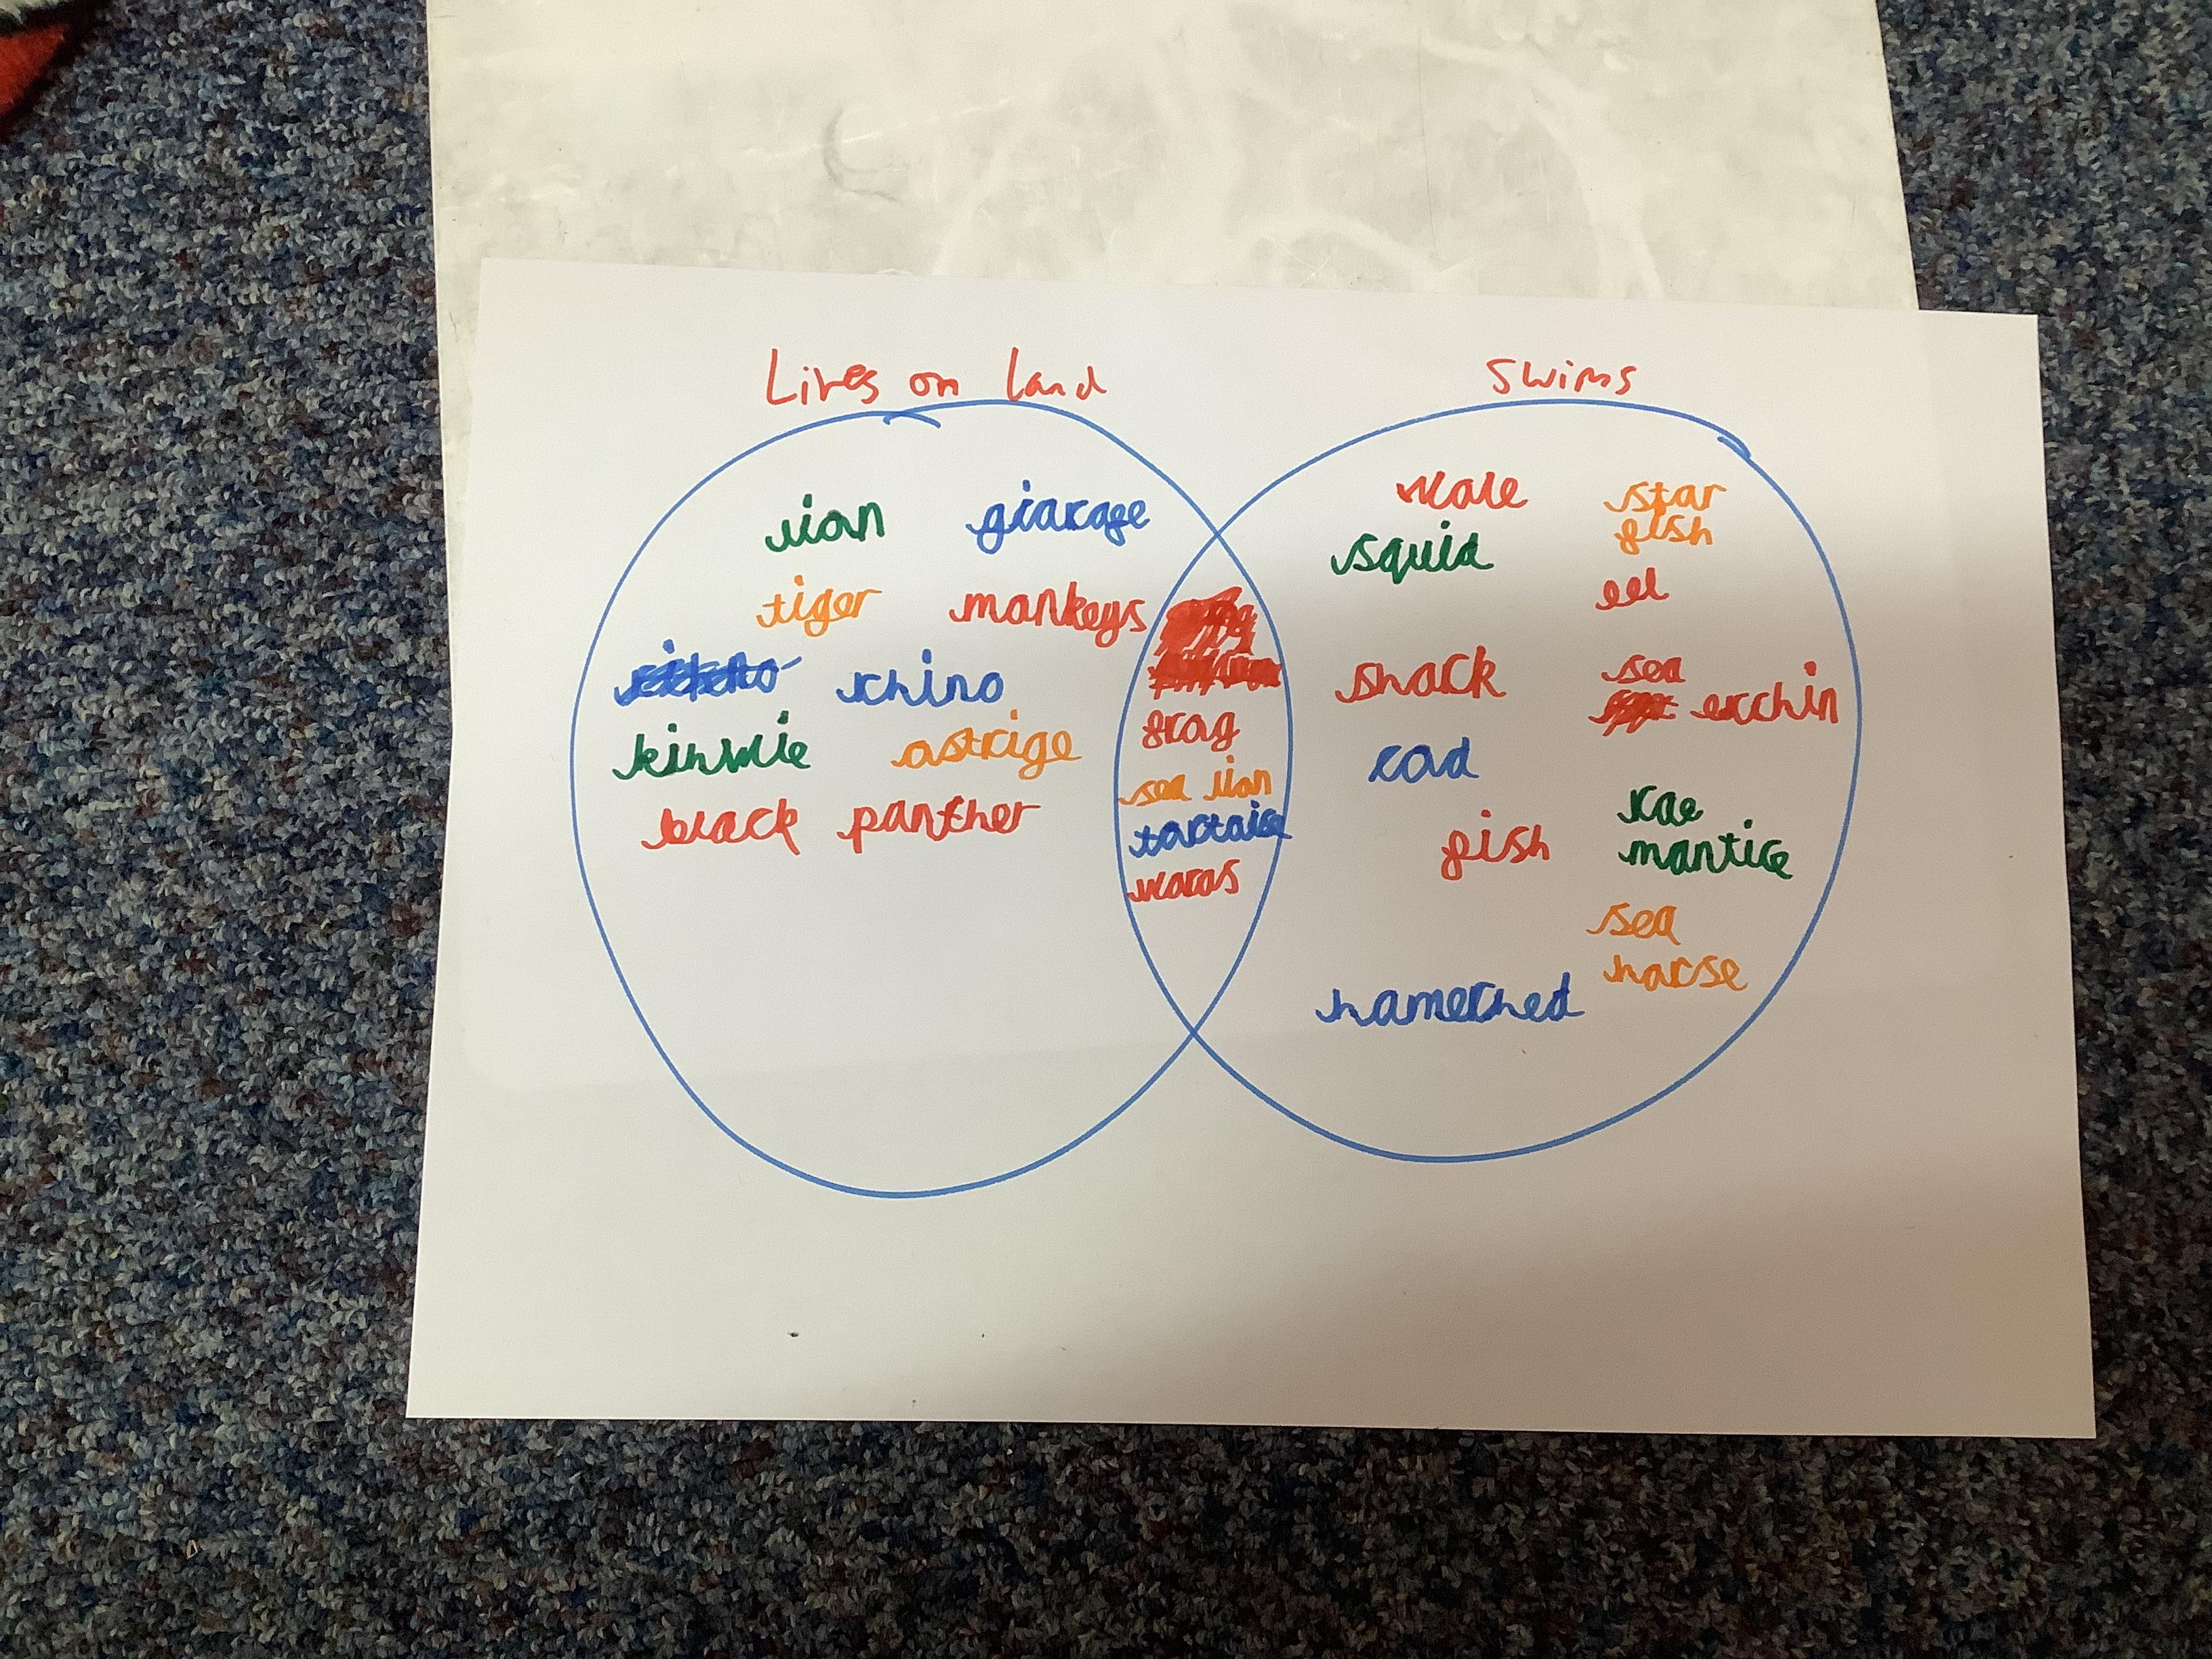 Lives on land
Swims
lion
giarafe
tiger
monkeys
rhino
astrige
black panther
frog
sea lion
tortoise
walas
wale
squid
shark
cod
fish
hamerhed
star
fish
eel
sea
erchin
rae
mantice
sea
horse